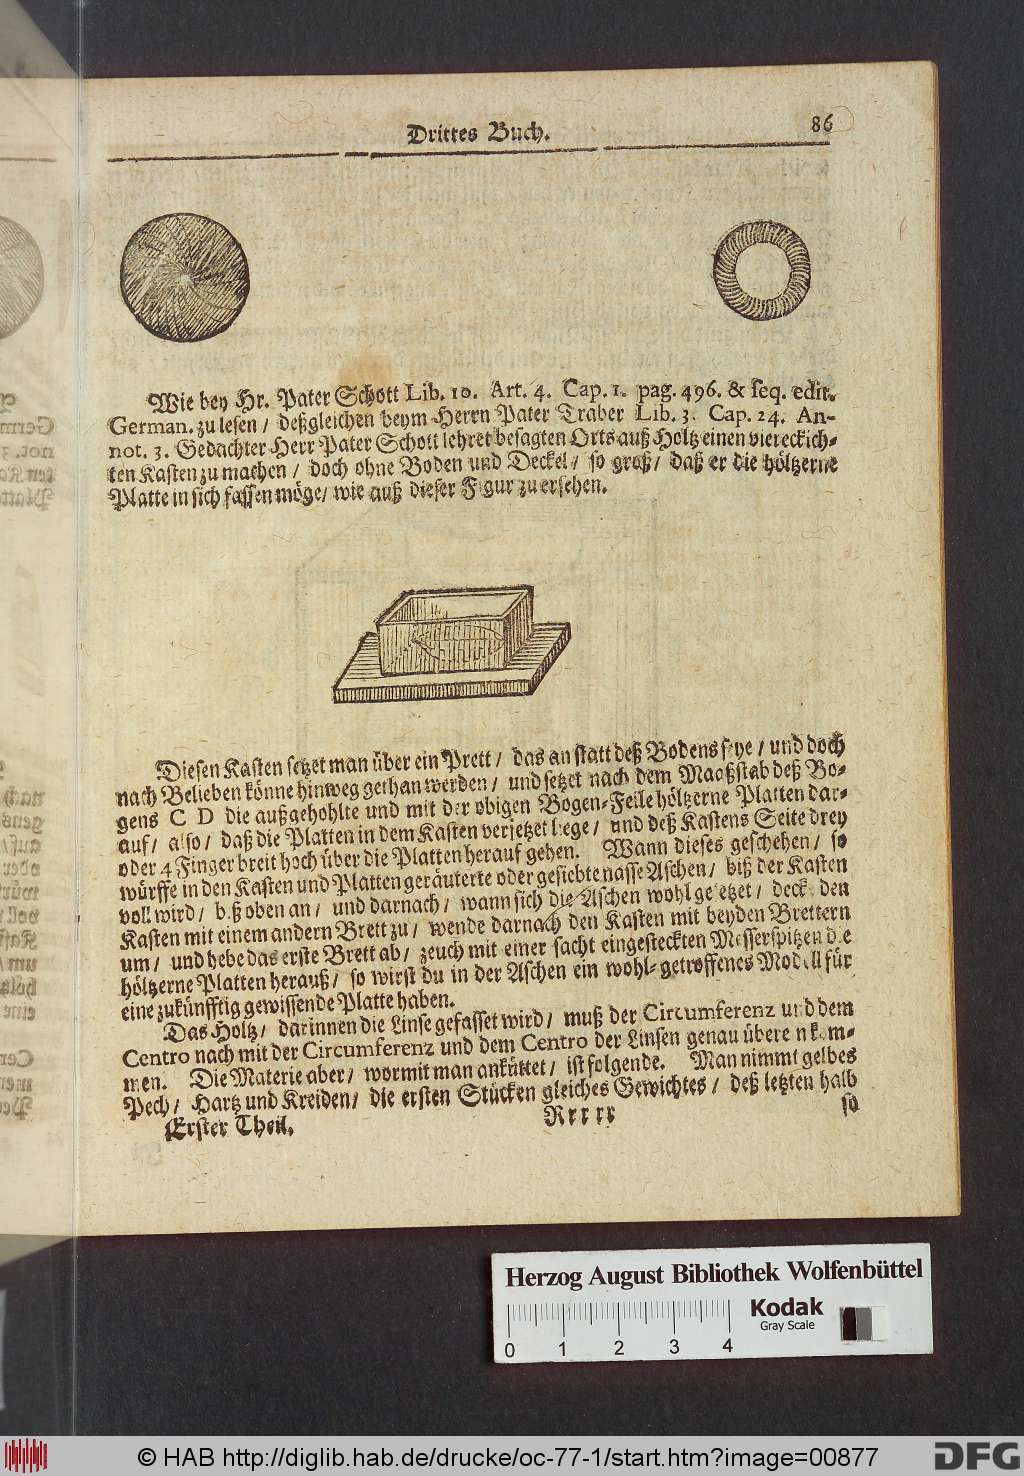 Drittes Buch.
86
Wie bey Hr. Pater Schott Lib. 10. Art. 4. Cap. 1. pag. 496. & seq. edit.
German. zu lesen / deßgleichen beym Herrn Pater Traber Lib. 3. Cap. 24. An-
not. 3. Gedachter Herr Pater Schott lehret besagten Orts auß Holtz einen viereckich-
ten Kasten zu machen / doch ohne Boden und Deckel / so groß / daß er die höltzerne
Platte in sich fassen möge / wie auß dieser Figur zu ersehen.
Diesen Kasten setzet man über ein Prett / das an statt deß Bodens seye / und doch
nach Belieben könne hinweg gethan werden / und setzet nach dem Maaßstab deß Bo-
gens C D die außgehohlte und mit der obigen Bogen-Feile höltzerne Platten dar-
auf / also / daß die Platten in dem Kasten versetzet liege / und deß Kastens Seite drey
oder 4 Finger breit hoch über die Platten herauf gehen. Wann dieses geschehen / so
würffe in den Kasten und Platten geräuterte oder gesiebte nasse Aschen / biß der Kasten
voll wird / biß oben an / und darnach / wann sich die Aschen wohl gesetzet / decke den
Kasten mit einem andern Brett zu / wende darnach den Kasten mit beyden Brettern
um / und hebe das erste Brett ab / zeuch mit einer sacht eingesteckten Messerspitzen die
höltzerne Platten herauß / so wirst du in der Aschen ein wohl-getroffenes Modell für
eine zukünfftig gewissende Platte haben.
Das Holtz / darinnen die Linse gefasset wird / muß der Circumferenz und dem
Centro nach mit der Circumferenz und dem Centro der Linsen genau überein kom-
men. Die Materie aber / wormit man anküttet / ist folgende. Man nimmt gelbes
Pech / Hartz und Kreiden / die ersten Stücken gleiches Gewichtes / deß letzten halb
Erster Theil.
Rrrrr
so
Herzog August Bibliothek Wolfenbüttel
Kodak
Gray Scale
0 1 2 3 4
© HAB http://diglib.hab.de/drucke/oc-77-1/start.htm?image=00877
DFG